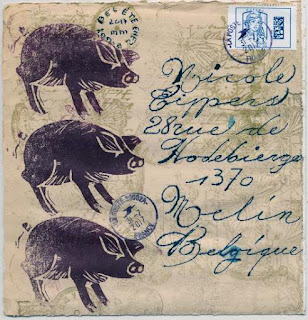 Nicole
Eippers
28 rue de
Hodebierge
1370
Mélin
Belgique